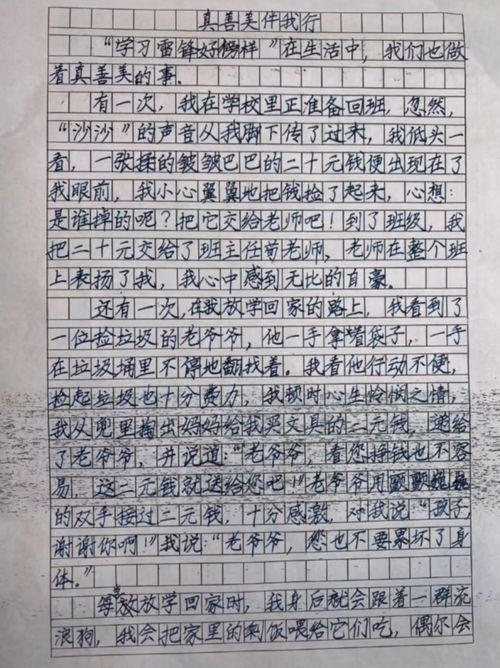 真善美伴我行
“学习雷锋好榜样”在生活中，我们也做
着真善美的事。
有一次，我在学校里正准备回班，忽然，
“沙沙”的声音从我脚下传了过来，我低头一
看，一张揉的皱皱巴巴的二十元钱便出现在了
我眼前，我小心翼翼地把钱捡了起来，心想：
是谁掉的呢？把它交给老师吧！到了班级，我
把二十元交给了班主任荀老师，老师在整个班
上表扬了我，我心中感到无比的自豪。
还有一次，在我放学回家的路上，我看到了
一位捡垃圾的老爷爷，他一手拿着袋子，一手
在垃圾埇里不停地翻找着。我看他行动不便，
捡起垃圾也十分费力，我顿时心生怜悯之情，
我从兜里掏出妈妈给我买文具的二元钱，递给
了老爷爷，并说道：“老爷爷，看您挣钱也不容
易，这二元钱就送给您吧！”老爷爷用颤颤巍巍
的双手接过二元钱，十分感激，对我说：“孩子，
谢谢你啊！”我说：“老爷爷，您也不要累坏了身
体。”
每当放学回家时，我身后就会跟着一群流
浪狗，我会把家里的剩饭喂给它们吃，偶尔会